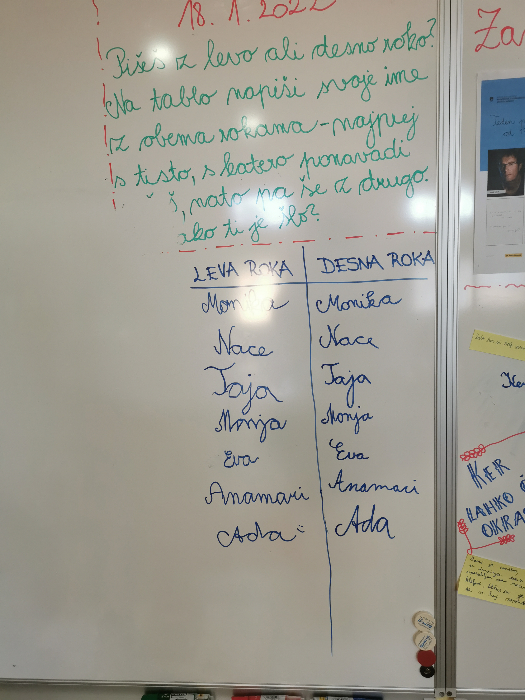 18. 1. 2022
Pišeš z levo ali desno roko?
Na tablo napiši svoje ime
z obema rokama - najprej
s tisto, s katero ponavadi
š, nato pa še z drugo.
ako ti je šlo?
LEVA ROKA DESNA ROKA
Monika Monika
Nace Nace
Taja Taja
Monja Monja
Eva Eva
Anamari Anamari
Ada Ada
Za
KER
LAHKO
OKRA